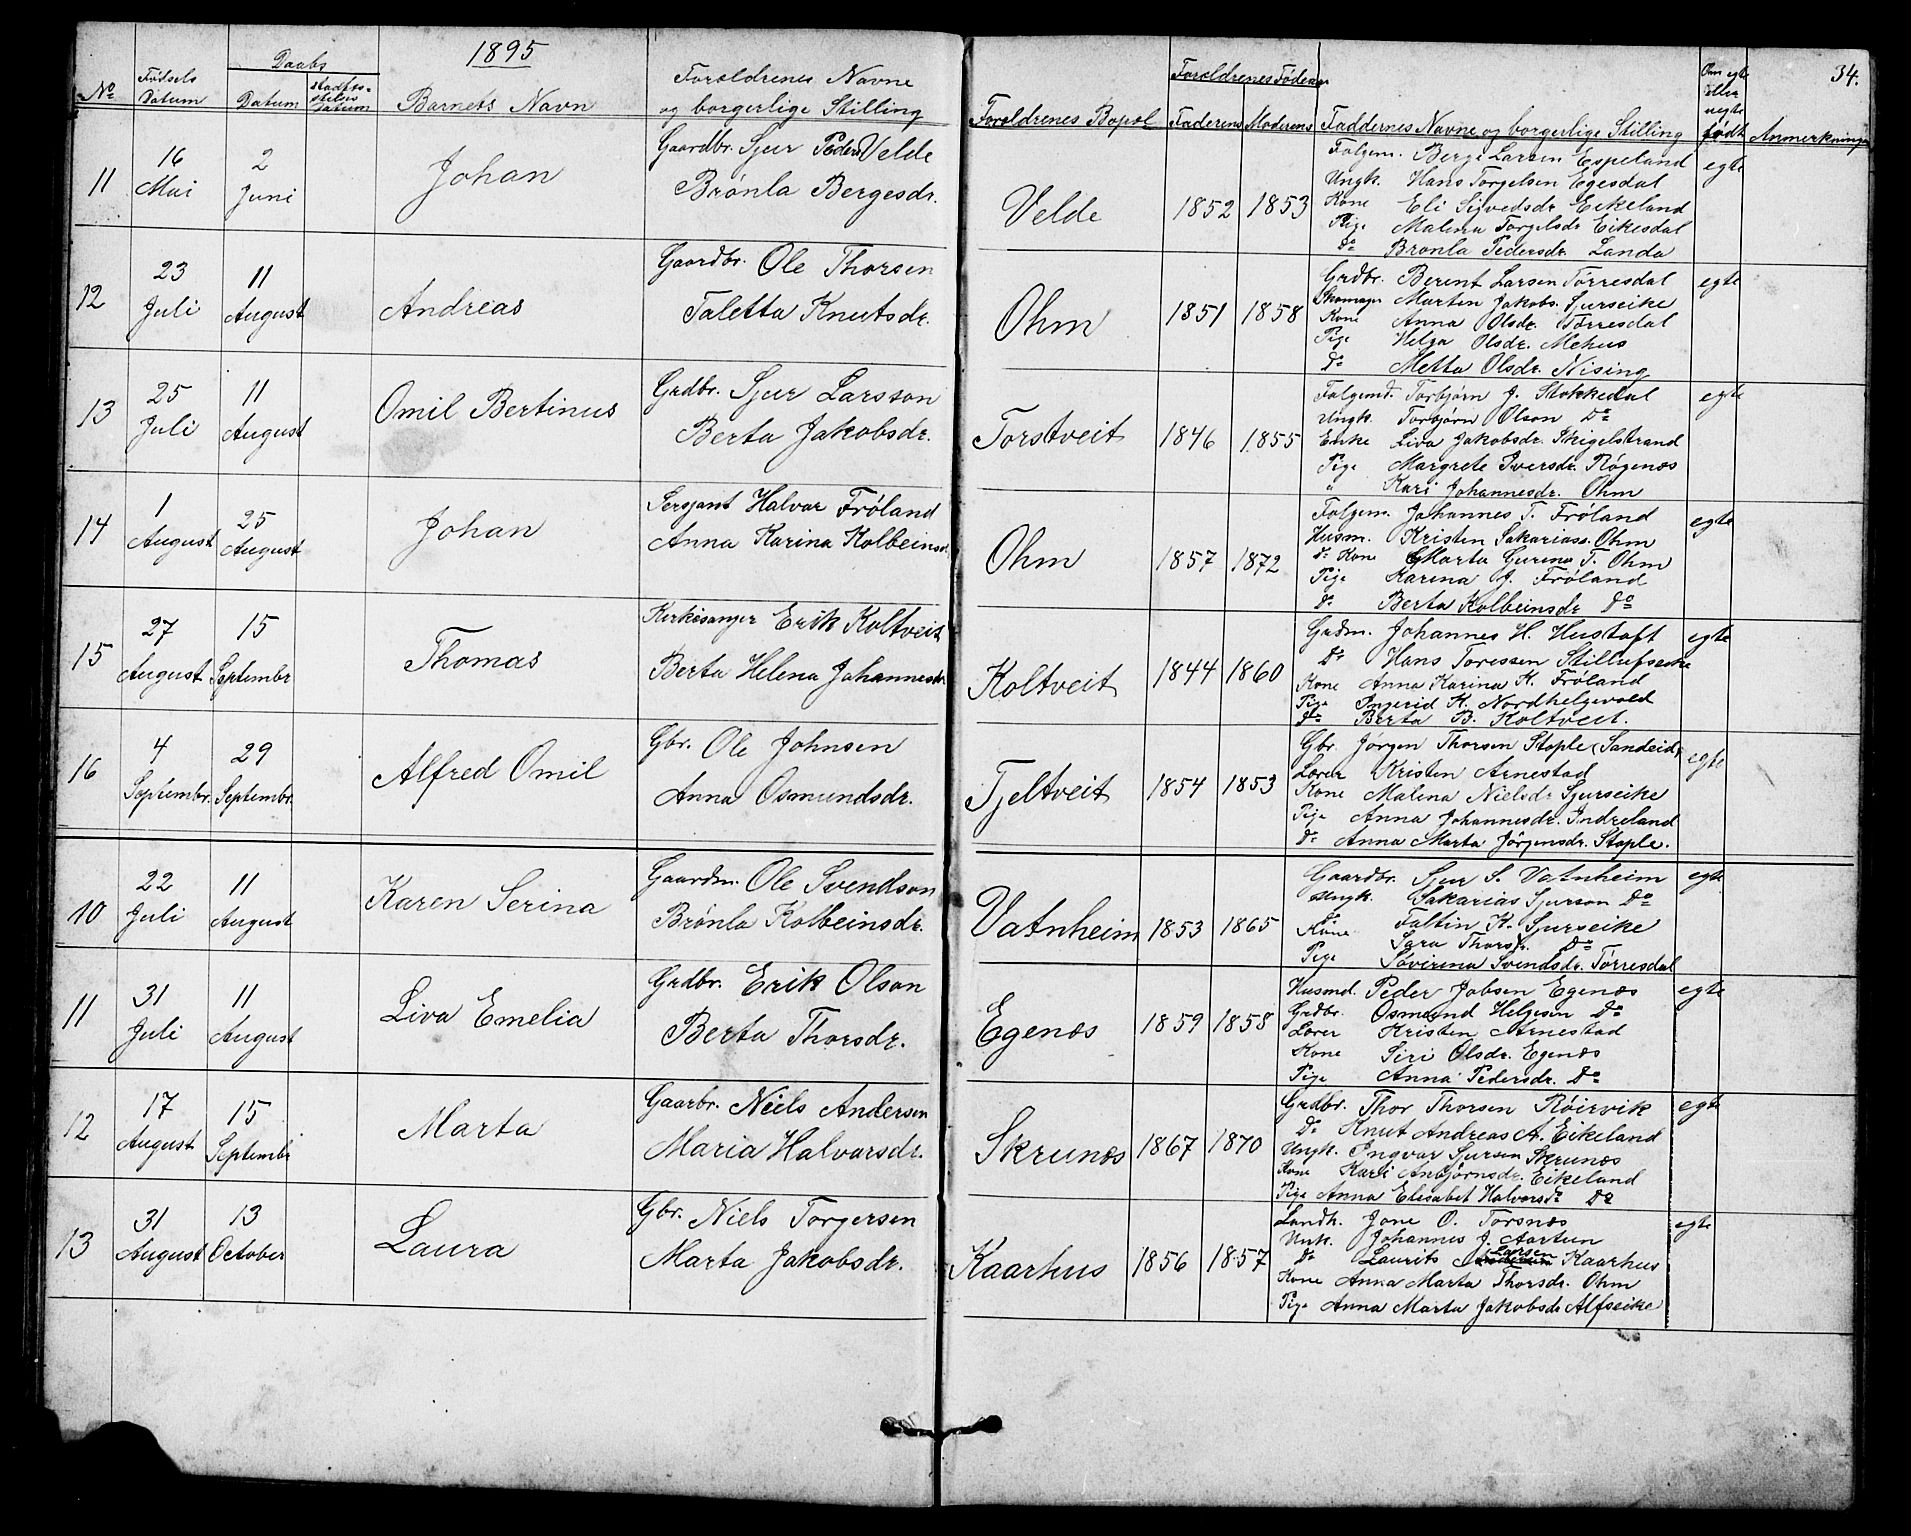 1895
34.
No
Fødsels Datum
Daabs
Datum
Stadfæstelses Datum
Barnets Navn
Forældrenes Navne
og borgerlige Stilling
Forældrenes Bopæl
Forældrenes Fødeaar
Faderens
Moderens
Faddernes Navne og borgerlige Stilling
Om egte eller uegte født
Anmerkninger
11
16 Mai
2 Juni
Johan
Gaardbr. Sjur Peders Velde
Brønla Bergesdr.
Velde
1852
1853
Folgem. Berge Larsen Espeland
Ungk. Hans Torgelsen Egesdal
Kone Eli Sivedsdr Eikeland
Pige Malena Torgelsdr Eikesdal
Do Brønla Pedersdr. Landa
egte
12
23 Juli
11 August
Andreas
Gaardbr. Ole Thorsen
Taletta Knutsdr.
Ohm
1851
1858
Grdbr. Berent Larsen Tørresdal
Skomager Marten Jakobs. Sjurseike
Kone Anna Olsdr. Tørresdal
Pige Helga Olsdr. Mehus
Do Metta Olsdr. Nising
egte
13
25 Juli
11 August
Omil Bertinus
Grdbr. Sjur Larsson
Berta Jakobsdr.
Torstveit
1846
1855
Folgemd. Torbjørn J. Stokkedal
Ungk. Torbjørn Olson Do
Enke Liva Jakobsdr. Skigelstrand
Pige Margrete Iversdr. Røgenæs
" Kari Johannesdr. Ohm
egte
14
1 August
25 August
Johan
Sersjant Halvar Frøland
Anna Karina Kolbeinsd.
Ohm
1857
1872
Folgem. Johannes T. Frøland
Husm. Kristen Sakarias. Ohm
do Kone Marta Gurina T. Ohm
Pige Karina J. Frøland
Do Berta Kolbeinsdr Do
egte
15
27 August
15 Septembr
Thomas
Kirkesanger Erik Koltveit
Berta Helena Johannesdr
Koltveit
1844
1860
Grdm. Johannes H. Hustoft
Do Hans Toressen Stillufseike
Kone Anna Karina K. Frøland
Pige Ingerid K. Nordhelgevold
do Berta B. Koltveit.
egte
16
4 Septembr.
29 Septembr.
Alfred Omil
Gbr. Ole Johnsen
Anna Osmundsdr.
Tjeltveit
1854
1853
Gbr. Jørgen Thorsen Stople (Sandeid)
Lærer Kristen Arnestad
Kone Malena Nielsdr Sjurseike
Pige Anna Johannesdr. Indreland
Do Anna Marta Jørgensdr. Stople.
egte
10
22 Juli
11 August
Karen Serina
Gaardm. Ole Svendson
Brønla Kolbeinsdr.
Vatnheim
1853
1865
Gaardbr. Sjur S. Vatnheim
Ungk. Sakarias Sjurson Do
Do Faltin K. Sjurseike
Kone Sara Thorsdr. Do
Pige Søvirina Svendsdr. Tørresdal
egte
11
31 Juli
11 August
Liva Emelia
Grdbr. Erik Olson
Berta Thorsdr.
Egenæs
1859
1858
Husmd. Peder Jobsen Egenæs
Grdbr. Osmund Helgesen Do
Lærer Kristen Arnestad
Kone Siri Olsdr. Egenæs
Pige Anna Pedersdr. Do
egte
12
17 August
15 Septembr
Marta
Gaarbr. Niels Andersen
Maria Halvarsdr.
Skrunæs
1867
1870
Grdbr. Thor Thorsen Røirvik
Do Knut Andreas A. Eikeland
Ungk. Ingvar Sjursen Skrunæs
Kone Kari Anbjørnsdr. Eikeland
Pige Anna Elisabet Halvorsdr Do
egte
13
31 August
13 October
Laura
Gbr. Niels Torgersen
Marta Jakobsdr.
Kaarhus
1856
1857
Landh. Jone O. Torsnæs
Unk. Johannes J. Aartun
Do Laurits Larsen Kaarhus
Kone Anna Marta Thorsdr. Ohm
Pige Anna Marta Jakobsdr Alfseike
egte